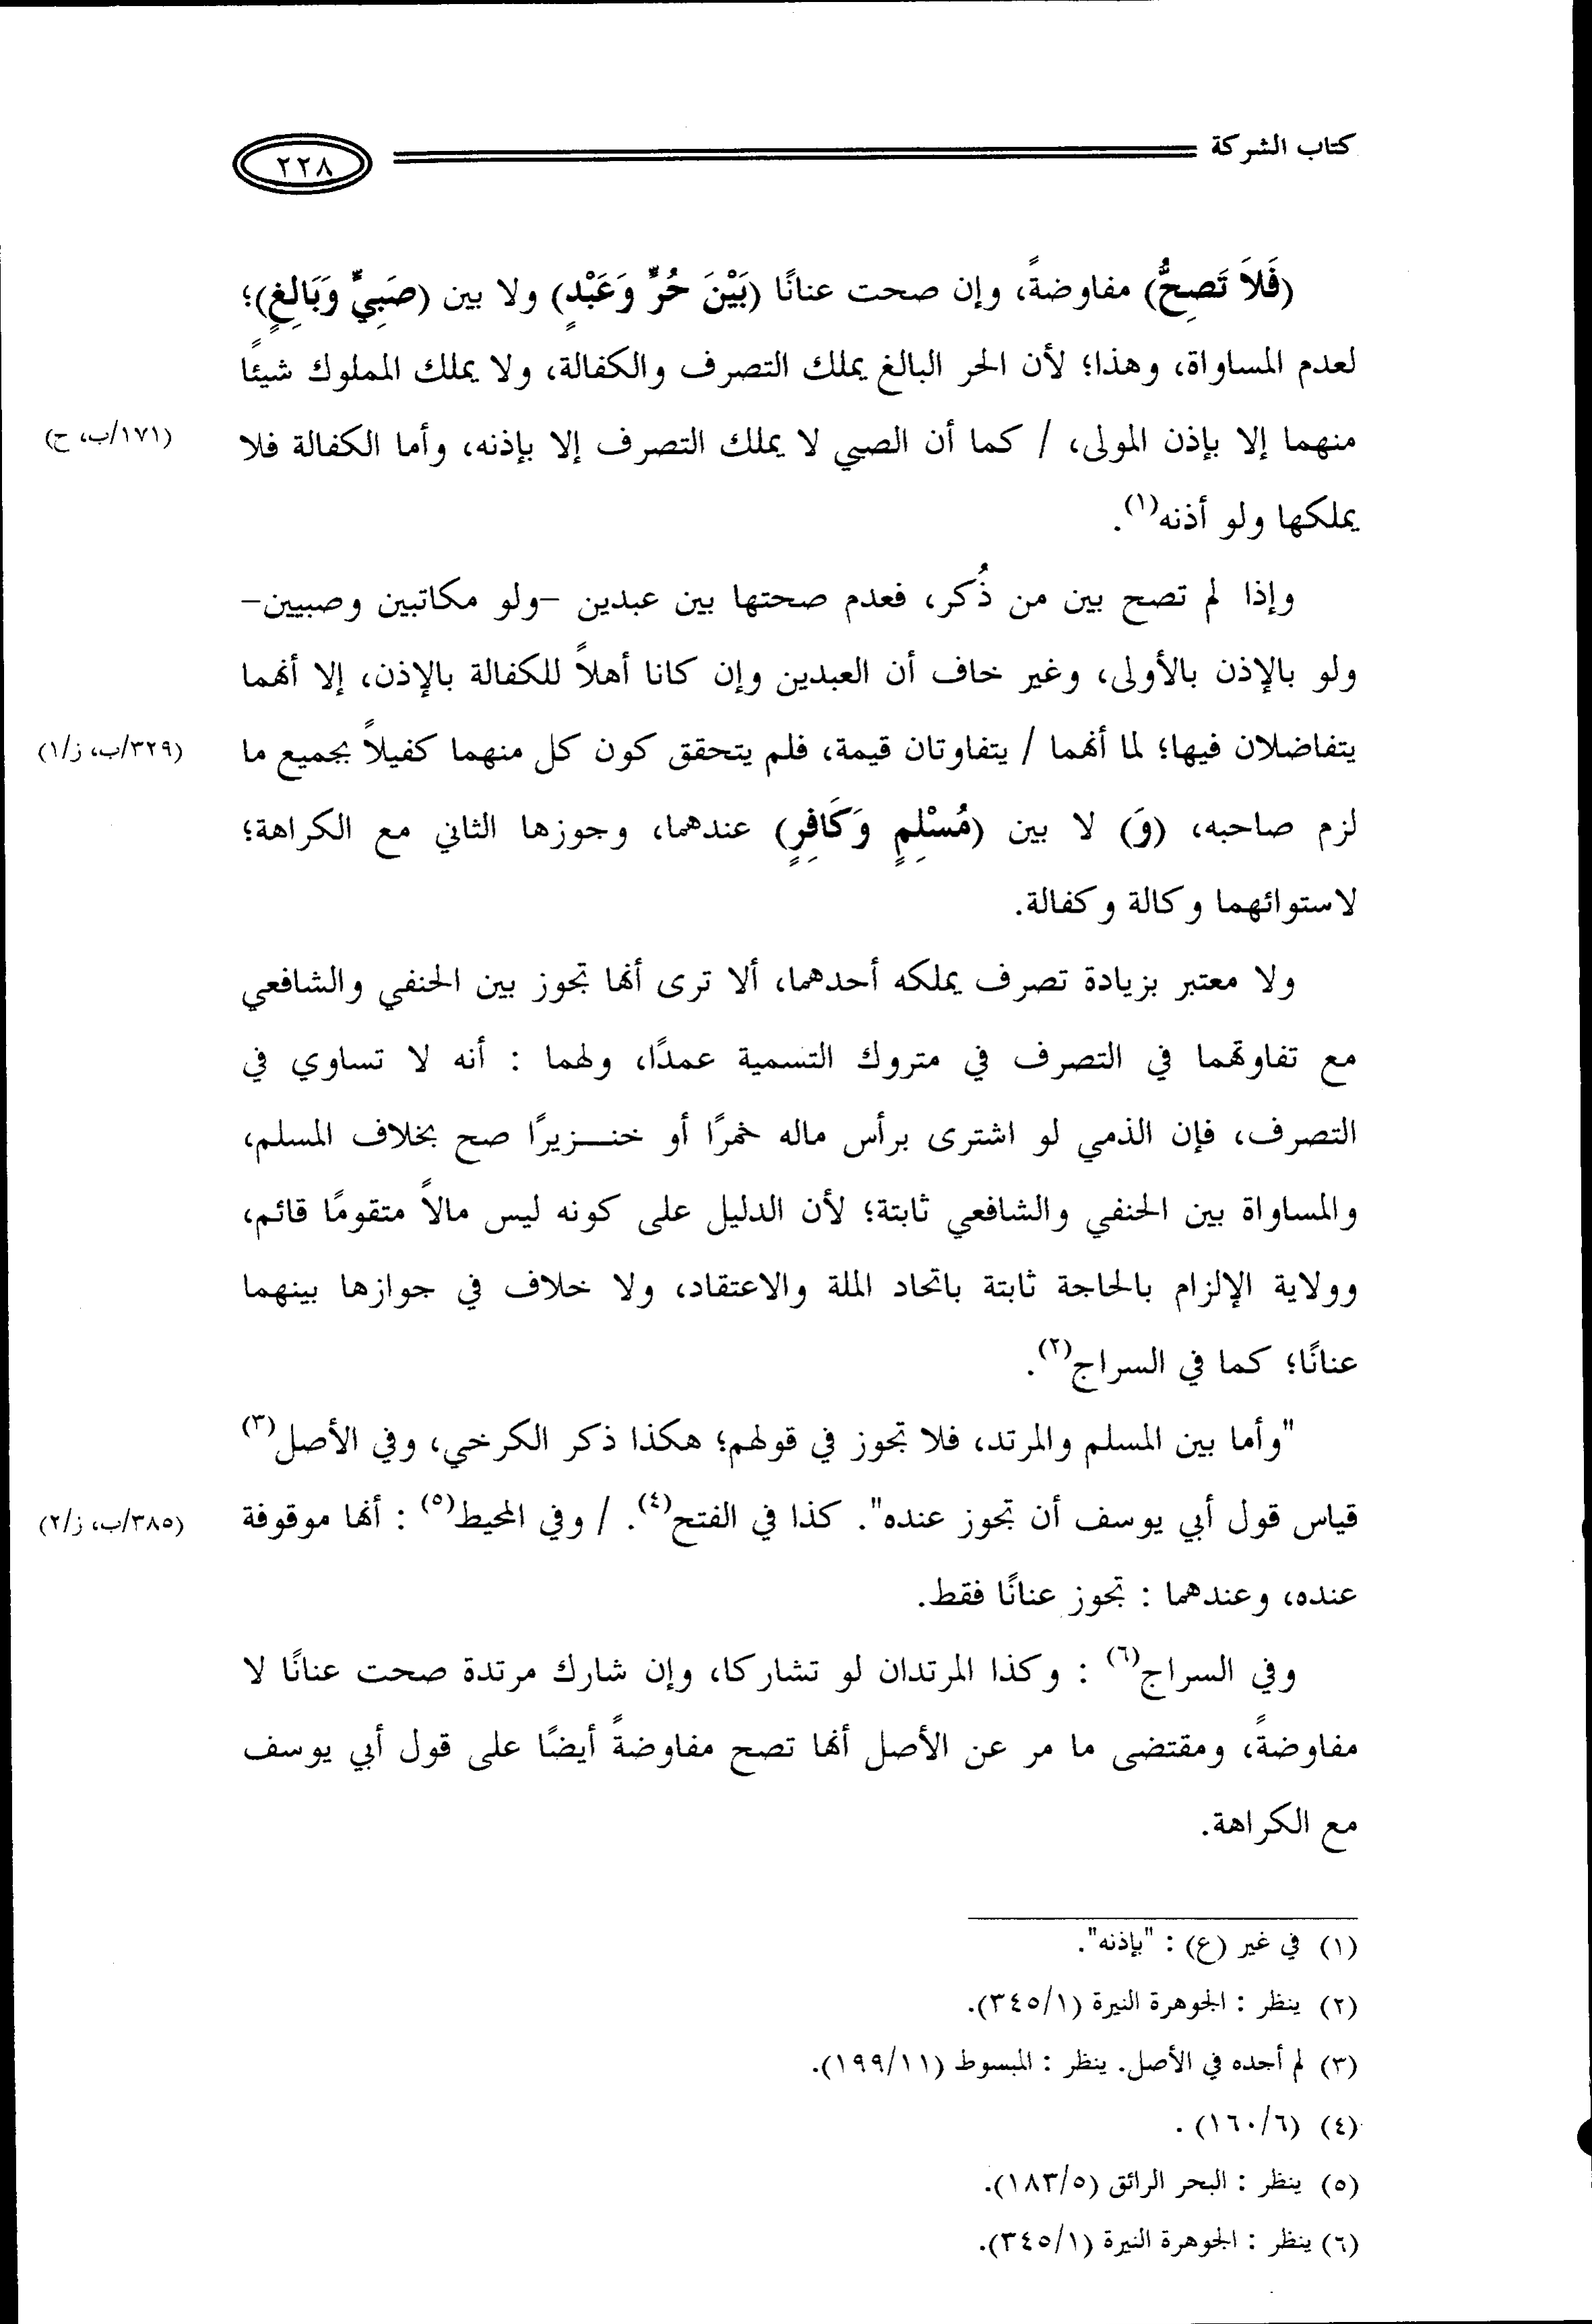 كتاب الشركة ٢٢٨
(فَلاَ تَصِحُّ) مفاوضةً، وإن صحت عنانًا (بَيْنَ حُرٍّ وَعَبْدٍ) ولا بين (صَبِيٍّ وَبَالِغٍ)؛
لعدم المساواة، وهذا؛ لأن الحر البالغ يملك التصرف والكفالة، ولا يملك المملوك شيئًا
منهما إلا بإذن المولى، / كما أن الصبي لا يملك التصرف إلا بإذنه، وأما الكفالة فلا (١٧١/ب، ح)
يملكها ولو أذنه(١).
وإذا لم تصح بين من ذُكر، فعدم صحتها بين عبدين –ولو مكاتبين وصبيين–
ولو بالإذن بالأولى، وغير خاف أن العبدين وإن كانا أهلاً للكفالة بالإذن، إلا أنهما
يتفاضلان فيها؛ لما أنهما / يتفاوتان قيمة، فلم يتحقق كون كل منهما كفيلاً بجميع ما (٣٢٩/ب، ز/١)
لزم صاحبه، (وَ) لا بين (مُسْلِمٍ وَكَافِرٍ) عندهما، وجوزها الثاني مع الكراهة؛
لاستوائهما وكالة وكفالة.
ولا معتبر بزيادة تصرف يملكه أحدهما، ألا ترى أنها تجوز بين الحنفي والشافعي
مع تفاوتهما في التصرف في متروك التسمية عمدًا، ولهما : أنه لا تساوي في
التصرف، فإن الذمي لو اشترى برأس ماله خمرًا أو خنـــزيرًا صح بخلاف المسلم،
والمساواة بين الحنفي والشافعي ثابتة؛ لأن الدليل على كونه ليس مالاً متقومًا قائم،
وولاية الإلزام بالحاجة ثابتة باتحاد الملة والاعتقاد، ولا خلاف في جوازها بينهما
عنانًا؛ كما في السراج(٢).
"وأما بين المسلم والمرتد، فلا تجوز في قولهم؛ هكذا ذكر الكرخي، وفي الأصل(٣)
قياس قول أبي يوسف أن تجوز عنده". كذا في الفتح(٤). / وفي المحيط(٥) : أنها موقوفة (٣٨٥/ب، ز/٢)
عنده، وعندهما : تجوز عنانًا فقط.
وفي السراج(٦) : وكذا المرتدان لو تشاركا، وإن شارك مرتدة صحت عنانًا لا
مفاوضةً، ومقتضى ما مر عن الأصل أنها تصح مفاوضةً أيضًا على قول أبي يوسف
مع الكراهة.
(١) في غير (ع) : "بإذنه".
(٢) ينظر : الجوهرة النيرة (٣٤٥/١).
(٣) لم أجده في الأصل. ينظر : المبسوط (١٩٩/١١).
(٤) (١٦٠/٦) .
(٥) ينظر : البحر الرائق (١٨٣/٥).
(٦) ينظر : الجوهرة النيرة (٣٤٥/١).